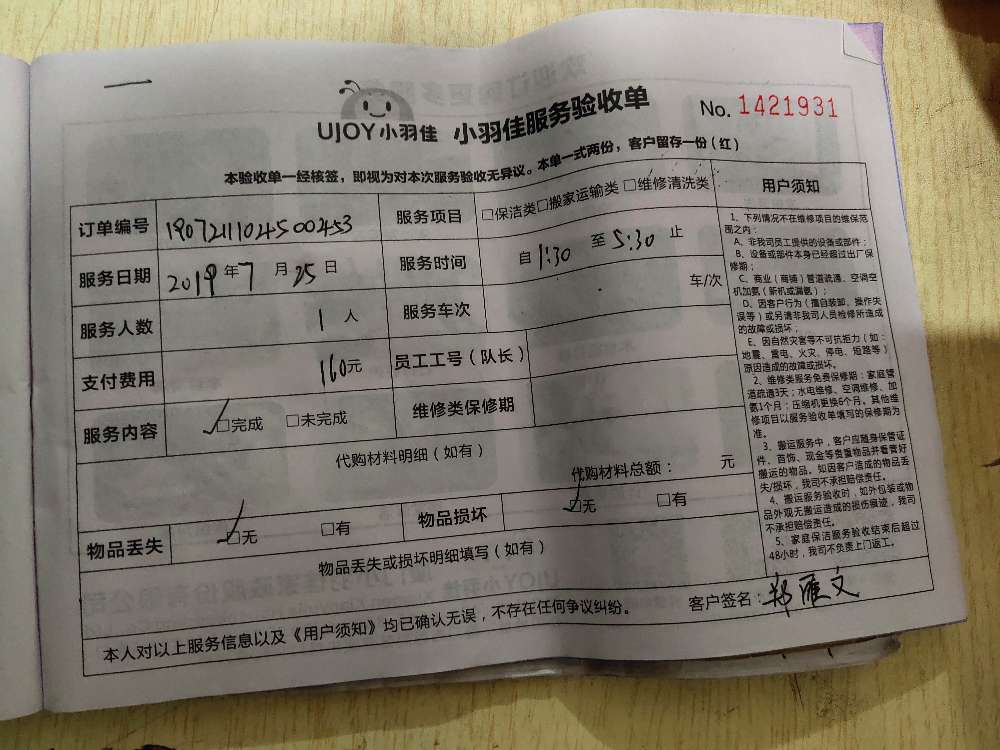 UJOY小羽佳 小羽佳服务验收单 No. 1421931
本验收单一经核签，即视为对本次服务验收无异议。本单一式两份，客户留存一份（红）
订单编号 1907211104500453 服务项目 □保洁类□搬家运输类 □维修清洗类
服务日期 2019年7月25日 服务时间 自1:30至5:30止
服务人数 1人 服务车次 车/次
支付费用 160元 员工工号（队长）
服务内容 ✓□完成 □未完成 维修类保修期
代购材料明细（如有）
代购材料总额： 元
物品丢失 ✓□无 □有 物品损坏 ✓□无 □有
物品丢失或损坏明细填写（如有）
本人对以上服务信息以及《用户须知》均已确认无误，不存在任何争议纠纷。 客户签名：郑雁文
用户须知
1、下列情况不在维修项目的维保范
围之内：
A、非我司员工提供的设备或部件；
B、设备或部件本身已经超过出厂保
修期；
C、商业（商铺）管道疏通、空调空
机加氨（新机或漏氨）；
D、因客户行为（擅自装卸、操作失
误等）或另请非我司人员检修所造成
的故障或损坏，
E、因自然灾害等不可抗拒力（如：
地震、雷电、火灾、停电、短路等）
原因造成的故障或损坏。
2、维修类服务免费保修期：家庭管
道疏通3天；水电维修、空调维修、加
氨1个月；压缩机更换6个月。其他维
修项目以服务验收单填写的保修期为
准。
3、搬运服务中，客户应随身保管证
件、首饰、现金等贵重物品并看管好
搬运的物品，如因客户造成的物品丢
失/损坏，我司不承担赔偿责任。
4、搬运服务验收时，如外包装或物
品外观无搬运造成的损伤痕迹，我司
不承担赔偿责任。
5、家庭保洁服务验收结束后超过
48小时，我司不负责上门返工。